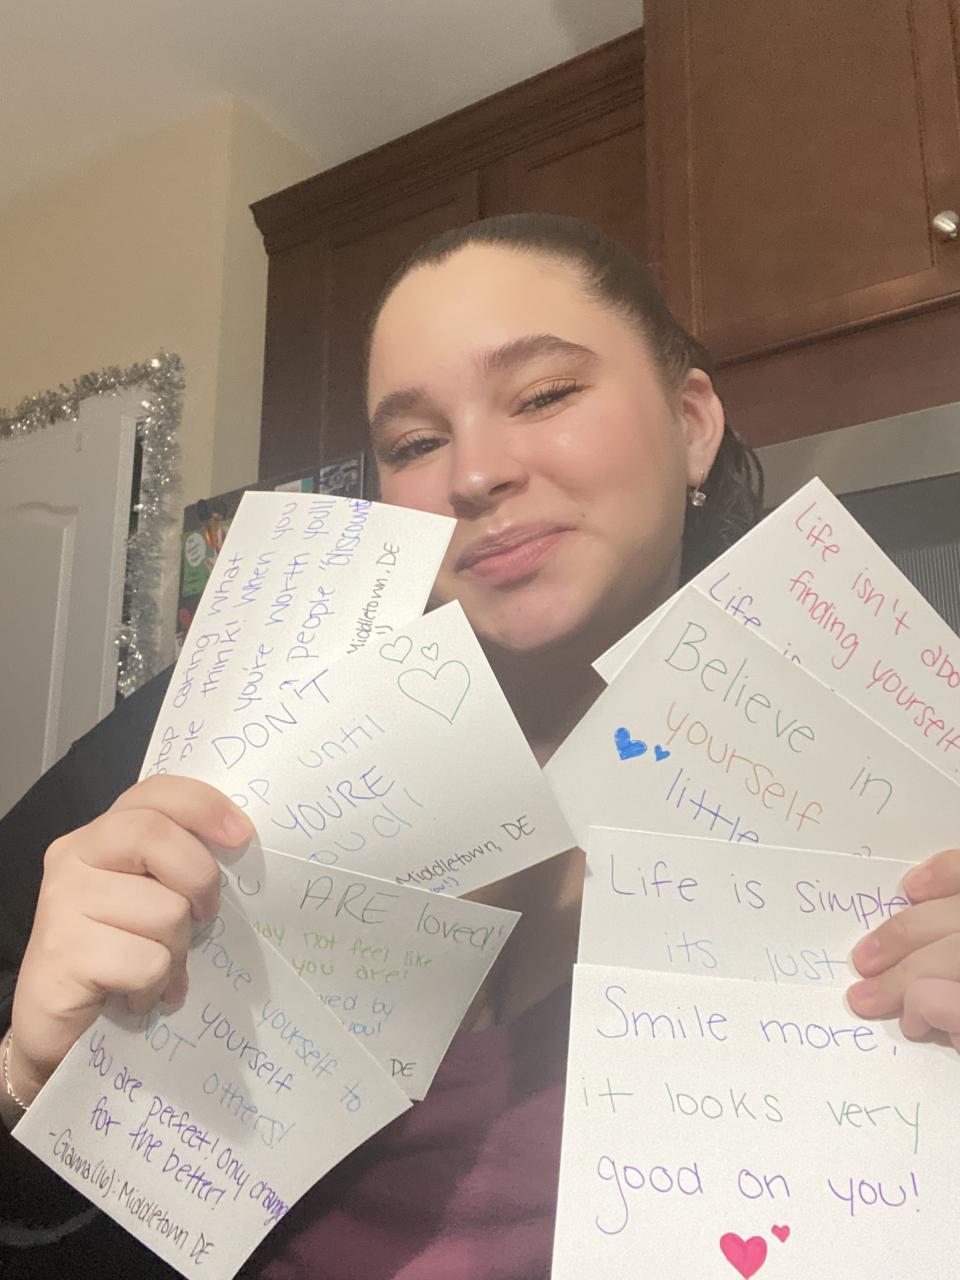 Stop caring what
think! When you
you're worth you'll
DON'T people "discount
Middletown, DE
:)
until
YOU'RE
Middletown, DE
you!)
ARE loved!
may not feel like
you are!
by
you!
DE
Prove yourself to
yourself
NOT others!
You are perfect! Only change
for the better!
-Gianna(16): Middletown DE
Life isn't abo
finding yourself
Life is
Believe in
yourself
little
Life is simple
its just
Smile more,
it looks very
good on you!